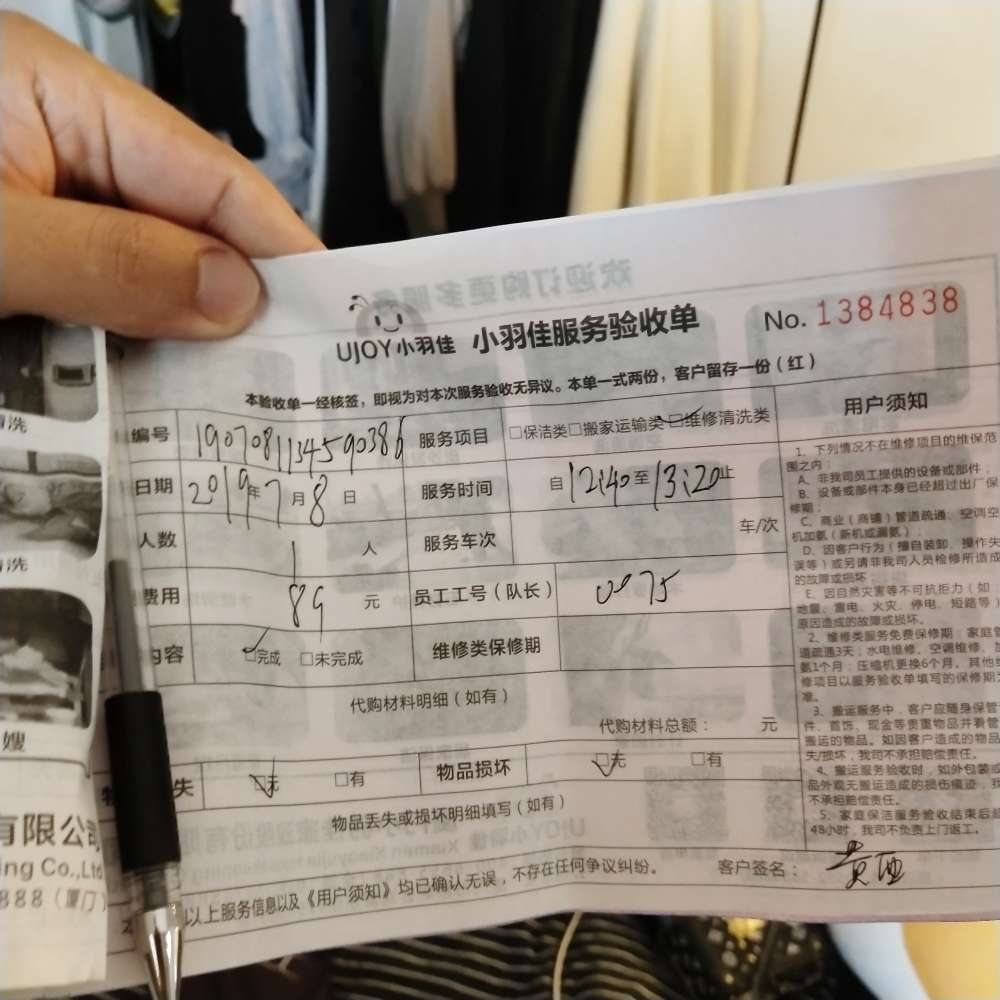 UJOY小羽佳 小羽佳服务验收单 No. 1384838
本验收单一经核签，即视为对本次服务验收无异议。本单一式两份，客户留存一份（红）
编号 1907081134590386 服务项目 □保洁类□搬家运输类□维修清洗类
日期 2019年7月8日 服务时间 自12:40至13:20止
人数 1 人 服务车次 车/次
费用 89 元 员工工号（队长） 0075
内容 □完成 □未完成 维修类保修期
代购材料明细（如有）
代购材料总额： 元
失 □无 □有 物品损坏 □无 □有
物品丢失或损坏明细填写（如有）
以上服务信息以及《用户须知》均已确认无误，不存在任何争议纠纷。 客户签名：
用户须知
1、下列情况不在维修项目的维保范
围之内：
A、非我司员工提供的设备或部件；
B、设备或部件本身已经超过出厂保
修期；
C、商业（商铺）管道疏通、空调空
机加氨（新机或漏氨）；
D、因客户行为（擅自装卸、操作失
误等）或另请非我司人员检修所造成
的故障或损坏
E、因自然灾害等不可抗拒力（如
地震、雷电、火灾、停电、短路等）
原因造成的故障或损坏。
2、维修类服务免费保修期：家庭管
道疏通3天；水电维修、空调维修、加
氨1个月；压缩机更换6个月。其他维
修项目以服务验收单填写的保修期为
准。
3、搬运服务中，客户应随身保管
件、首饰、现金等贵重物品并看管
搬运的物品。如因客户造成的物品
失/损坏，我司不承担赔偿责任。
4、搬运服务验收时，如外包装或
品外观无搬运造成的损伤痕迹，我
不承担赔偿责任。
5、家庭保洁服务验收结束后超
48小时，我司不负责上门返工。
洗
洗
嫂
有限公司
ing Co.,Ltd
888（厦门）